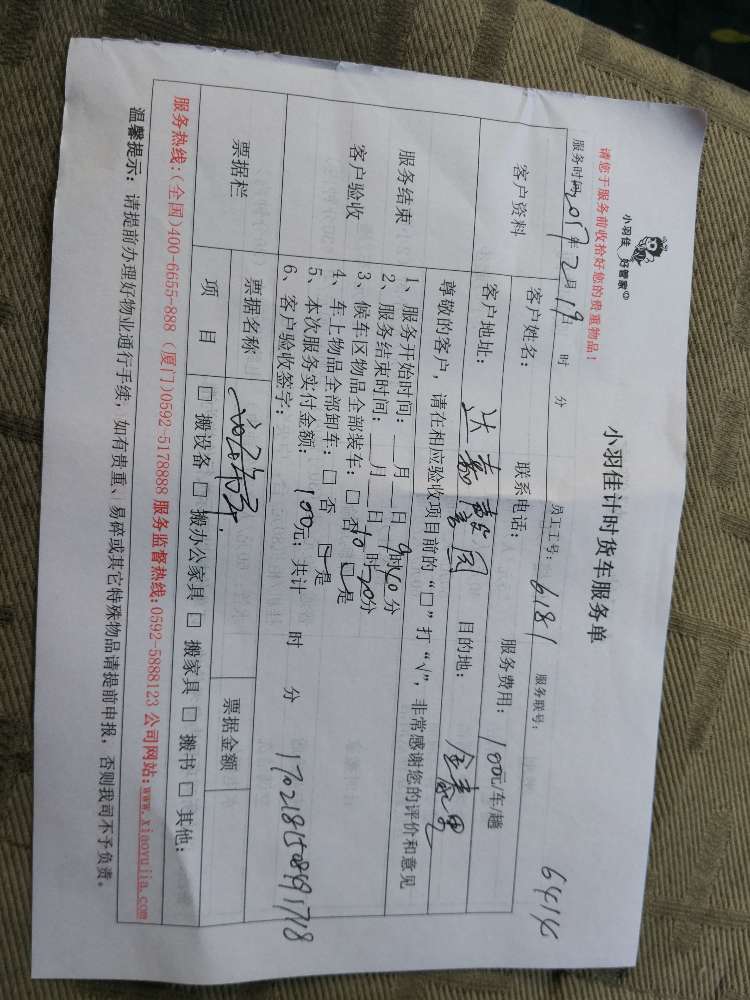 小羽佳 好管家
小羽佳计时货车服务单
请您于服务前收拾好您的贵重物品!
服务时间:2017年2月19日 时 分 员工工号: 6181 服务联号:
客户资料 客户姓名: 联系电话: 服务费用: 100元/车/趟
客户地址: 达嘉馨园 目的地:
尊敬的客户,请在相应验收项目前的“□”打“√”,非常感谢您的评价和意见
服务结束
客户验收
1、服务开始时间: 月 日 9时40分
2、服务结束时间: 月 日 10时20分
3、候车区物品全部装车:□ 否 □ 是
4、车上物品全部卸车:□ 否 □ 是
5、本次服务实付金额: 100元;共计 时 分
6、客户验收签字:
票据栏 票据名称 票据金额
项 目 □ 搬设备 □ 搬办公家具 □ 搬家具 □ 搬书 □ 其他:
服务热线:(全国)400-6655-888 (厦门)0592-5178888 服务监督热线:0592-5888123 公司网站:www.xiaoyujia.com
温馨提示: 请提前办理好物业通行手续,如有贵重、易碎或其它特殊物品请提前申报,否则我司不予负责。